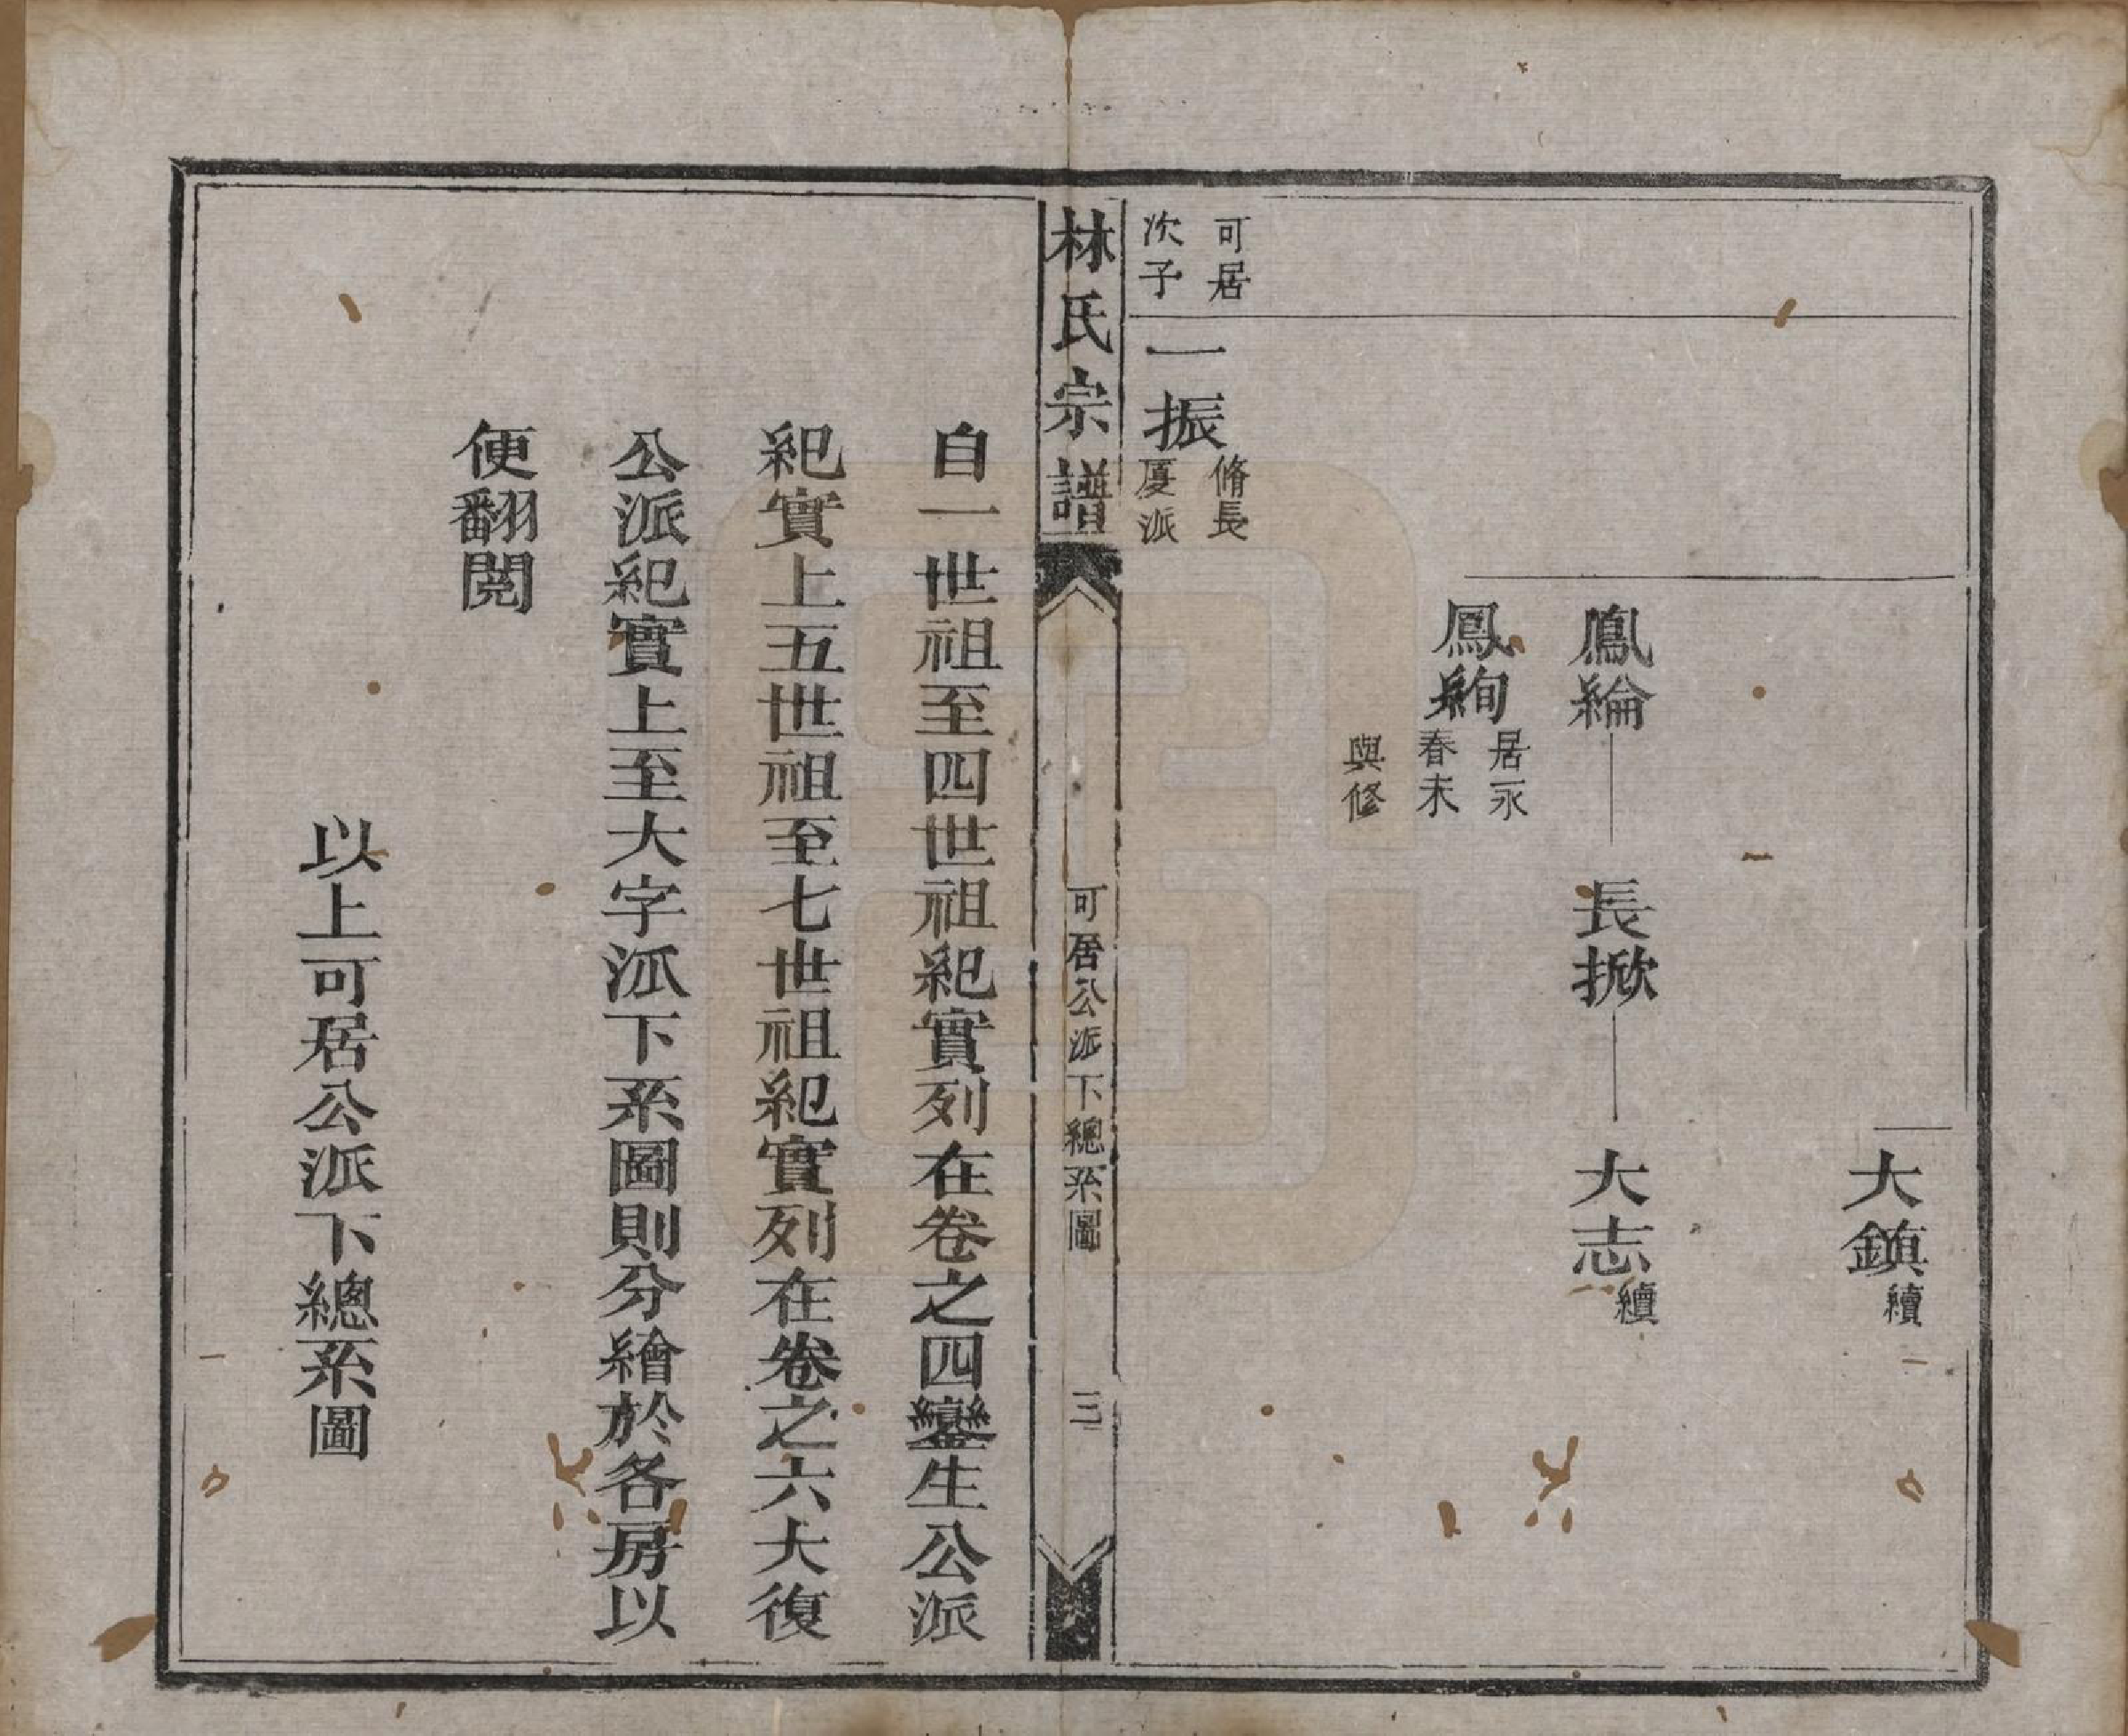 大鎮續
鳳綸 長掀 大志續
鳳絢居永春未與修
可居次子 一振脩長厦派
林氏宗譜 可居公派下總系圖 三
自一世祖至四世祖紀實列在卷之四鑾生公派
紀實上五世祖至七世祖紀實列在卷之六大復
公派紀實上至大字派下系圖則分繪於各房以
便翻閱
以上可居公派下總系圖